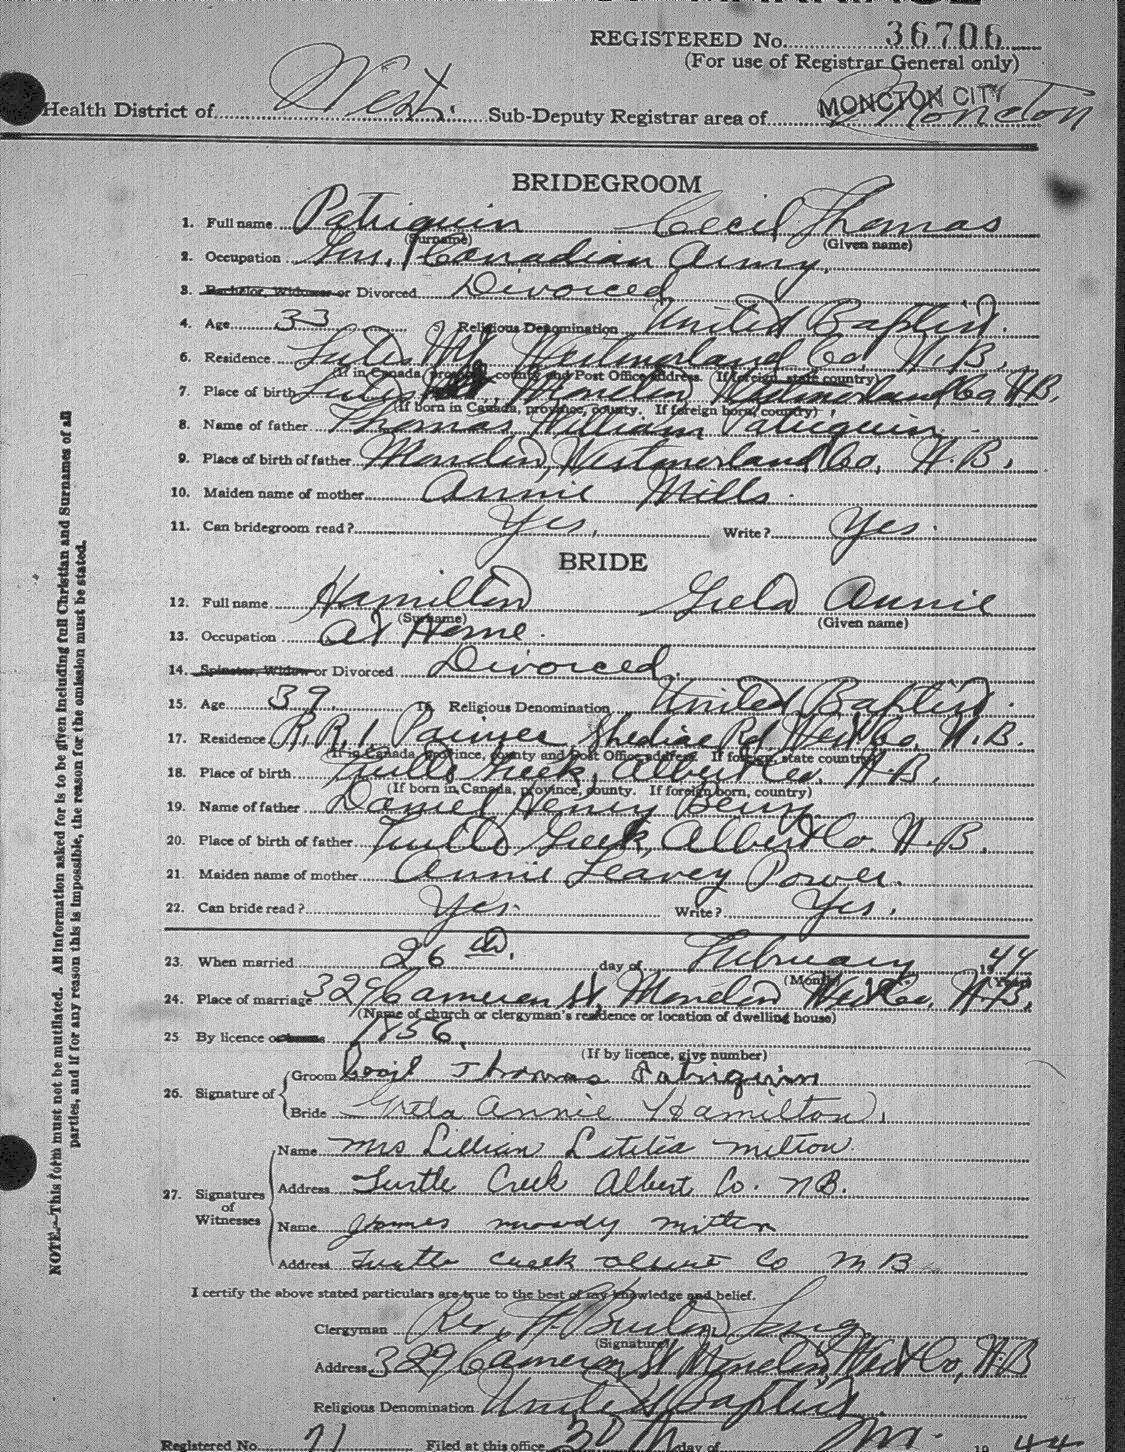 REGISTERED No. 36706
(For use of Registrar General only)
Health District of West. Sub-Deputy Registrar area of MONCTON CITY Moncton
BRIDEGROOM
1. Full name Patriquin Cecil Thomas
(Surname) (Given name)
2. Occupation Canadian Army.
3. Bachelor, Widower or Divorced Divorced
4. Age 33 5. Religious Denomination United Baptist.
6. Residence Lutes Mt. Westmorland Co, N.B.
(If in Canada, province, county and Post Office address. If foreign, state country)
7. Place of birth Lutes Moncton Westmorland Co N.B.
(If born in Canada, province, county. If foreign born, country)
8. Name of father Thomas William Patriquin
9. Place of birth of father Moncton, Westmorland Co, N.B.
10. Maiden name of mother Annie Mills.
11. Can bridegroom read? Yes. Write? Yes.
BRIDE
12. Full name Hamilton Greta Annie
(Surname) (Given name)
13. Occupation At Home.
14. Spinster, Widow or Divorced Divorced.
15. Age 39. 16. Religious Denomination United Baptist.
17. Residence R.R.1 Shediac Rd West Co, N.B.
(If in Canada, province, county and Post Office address. If foreign, state country)
18. Place of birth Turtle Creek, Albert Co. N.B.
(If born in Canada, province, county. If foreign born, country)
19. Name of father Daniel Henry Berry
20. Place of birth of father Turtle Creek, Albert Co. N.B.
21. Maiden name of mother Annie Leavey Power.
22. Can bride read? Yes. Write? Yes.
23. When married 26th. day of February 1944
(Month) (Year)
24. Place of marriage 329 Cameron St, Moncton West Co, N.B.
(Name of church or clergyman's residence or location of dwelling house)
25 By licence or banns 1856.
(If by licence, give number)
26. Signature of
Groom Cecil Thomas Patriquin
Bride Greta Annie Hamilton.
27. Signatures of Witnesses
Name Mrs Lillian Letitia Milton
Address Turtle Creek Albert Co. N.B.
Name James Moody Mitton
Address Turtle Creek Albert Co N B
I certify the above stated particulars are true to the best of my knowledge and belief.
Clergyman Rev. H. Long
(Signature)
Address 329 Cameron St Moncton, West Co, N.B
Religious Denomination United Baptist.
Registered No. 71 Filed at this office 30th day of 1944
NOTE.—This form must not be mutilated. All information asked for is to be given including full Christian and Surnames of all
parties, and if for any reason this is impossible, the reason for the omission must be stated.